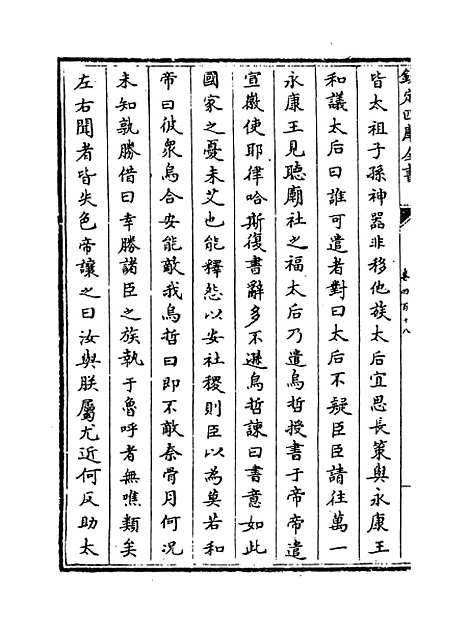 欽定四庫全書
卷四百十八
皆太祖子孫神器非移他族太后宜思長策與永康王
和議太后曰誰可遣者對曰太后不疑臣臣請往萬一
永康王見聽廟社之福太后乃遣烏哲授書于帝帝遣
宣徽使耶律哈斯復書辭多不遜烏哲諫曰書意如此
國家之憂未艾也能釋怨以安社稷則臣以為莫若和
帝曰彼衆烏合安能敵我烏哲曰即不敵奈骨月何況
未知孰勝借曰幸勝諸臣之族執于魯呼者無噍類矣
左右聞者皆失色帝讓之曰汝與朕屬尤近何反助太